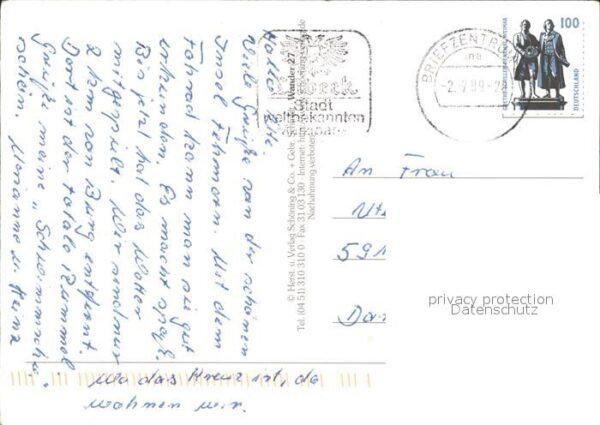 Hallo
Viele Grüße von der schönen
Insel Fehmarn. Mit dem
Fahrrad kann man sie gut
erkunden. Es macht Spaß.
Bis jetzt hat das Wetter
mitgespielt. Wir sind nur
2 km von Burg entfernt.
Dort ist der totale Rummel
Grüße, meine
schein. Marianne u. Heinz
Wo das Kreuz ist, da
wohnen wir.
© Herst. u. Verlag Schöning & Co. + Gebr.
Tel. (04 51) 310 310 0 · Fax 31 03 130 · Internet:
Nachahmung verboten
Wunder 27
Stadt
weltbekannten
BRIEFZENTRUM
-2.
99-2
100
DEUTSCHLAND
An Frau
Ut
591
Da
privacy protection
Datenschutz